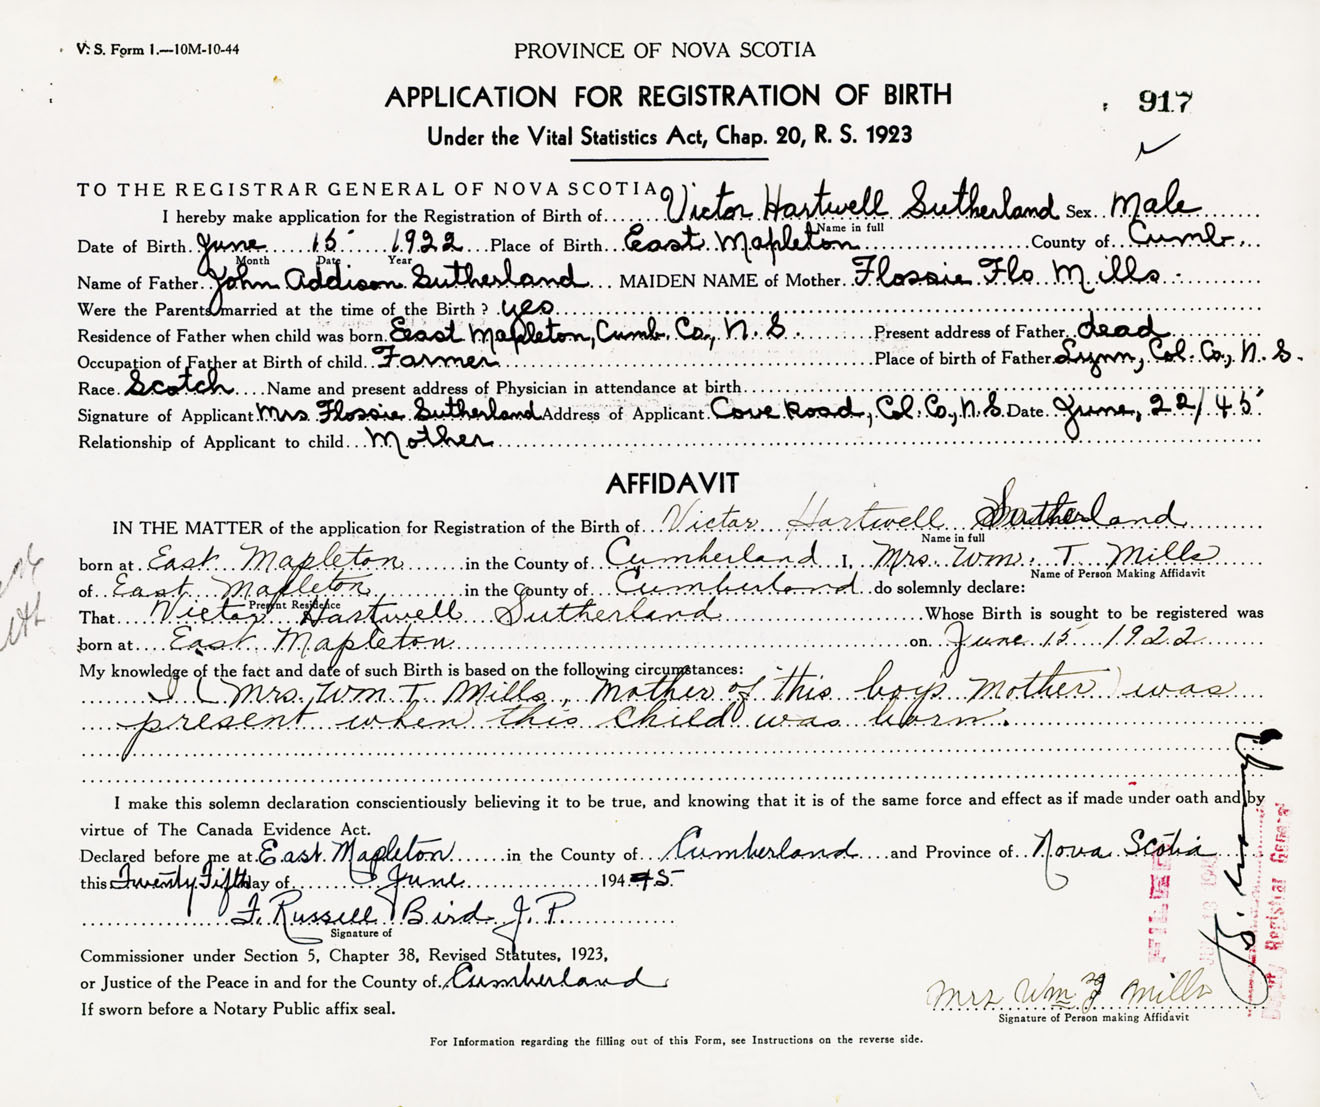 V. S. Form 1.—10M-10-44
PROVINCE OF NOVA SCOTIA
APPLICATION FOR REGISTRATION OF BIRTH
917
Under the Vital Statistics Act, Chap. 20, R. S. 1923
TO THE REGISTRAR GENERAL OF NOVA SCOTIA
I hereby make application for the Registration of Birth of Victor Hartwell Sutherland Sex Male
Name in full
Date of Birth June 15 1922 Place of Birth East Mapleton County of Cumb.
Month Date Year
Name of Father John Addison Sutherland MAIDEN NAME of Mother Flossie Flo Mills
Were the Parents married at the time of the Birth? yes
Residence of Father when child was born East Mapleton, Cumb. Co., N. S. Present address of Father dead
Occupation of Father at Birth of child Farmer Place of birth of Father Lynn, Col. Co., N. S.
Race Scotch Name and present address of Physician in attendance at birth
Signature of Applicant Mrs Flossie Sutherland Address of Applicant Cove Road, Col. Co, N. S. Date June, 22/45
Relationship of Applicant to child Mother
AFFIDAVIT
IN THE MATTER of the application for Registration of the Birth of Victor Hartwell Sutherland
Name in full
born at East Mapleton in the County of Cumberland I, Mrs. Wm. T. Mills
Name of Person Making Affidavit
of East Mapleton, in the County of Cumberland do solemnly declare:
Present Residence
That Victor Hartwell Sutherland Whose Birth is sought to be registered was
born at East Mapleton on June 15 1922
My knowledge of the fact and date of such Birth is based on the following circumstances:
I (Mrs. Wm. T. Mills, Mother of this boys Mother) was
present when this child was born.
I make this solemn declaration conscientiously believing it to be true, and knowing that it is of the same force and effect as if made under oath and by
virtue of The Canada Evidence Act.
Declared before me at East Mapleton in the County of Cumberland and Province of Nova Scotia
this Twenty Fifth day of June 194 45
F. Russell Bird J. P.
Signature of
Commissioner under Section 5, Chapter 38, Revised Statutes, 1923,
or Justice of the Peace in and for the County of Cumberland
If sworn before a Notary Public affix seal.
Mrs Wm T Mills
Signature of Person making Affidavit
For Information regarding the filling out of this Form, see Instructions on the reverse side.
FILED
Deputy Registrar General